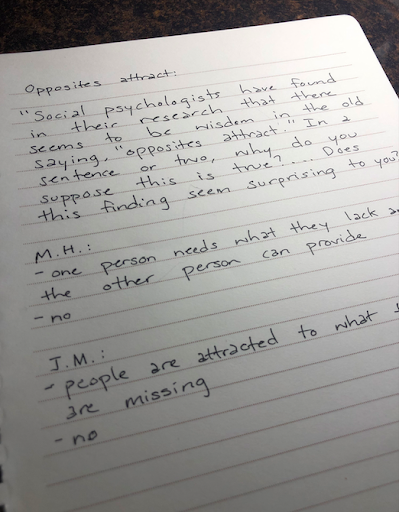 Opposites attract:
"Social psychologists have found
in their research that there
seems to be wisdom in the old
saying, "opposites attract." In a
sentence or two, why do you
suppose this is true?.... Does
this finding seem surprising to you?
M.H.:
- one person needs what they lack
the other person can provide
- no
J.M.:
- people are attracted to what
are missing
- no